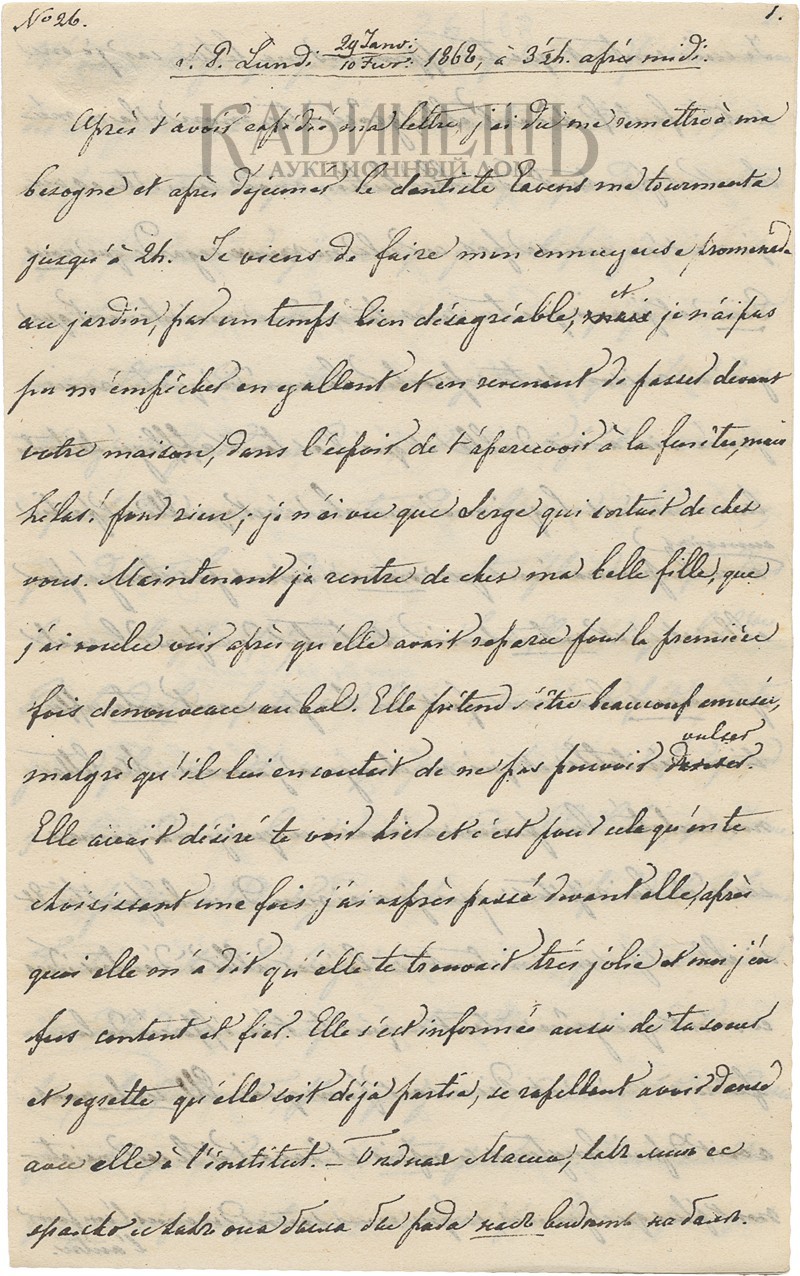 No 26.
1.
S. P. Lundi 29 Janv: / 10 Fevr: 1868, à 3 1/2 h. après midi.
КАБИНЕТЪ
АУКЦИОННЫЙ ДОМ
Après t'avoir expédié ma lettre, j'ai du me remettre à ma
besogne et après déjeuner le dentiste me tourmenta
jusqu'à 2h. Je viens de faire mon ennuyeuse promenade
au jardin, par un temps bien désagréable, mais et je n'ai pas
pu m'empêcher en y allant et en revenant de passer devant
votre maison, dans l'espoir de t'apercevoir à la fenêtre, mais
hélas! pour rien; je n'ai vu que Serge qui sortait de chez
vous. Maintenant je rentre de chez ma belle fille, que
j'ai voulu voir après qu'elle avait reparu pour la première
fois denouveau au bal. Elle prétend s'être beaucoup amusée,
malgré qu'il lui en coutait de ne pas pouvoir danser valser.
Elle avait désiré te voir hier et c'est pour cela qu'en te
choisissant une fois j'ai exprès passé devant elle, après
quoi elle m'a dit qu'elle te trouvait très jolie et moi j'en
fus content et fier. Elle s'est informée aussi de ta soeur
et regrette qu'elle soit déjà partie, se rapellant avoir dansé
avec elle à l'institut. – Бѣдная Маша, такъ мнѣ ее
жалко и такъ она была бы рада насъ видѣть на балѣ.